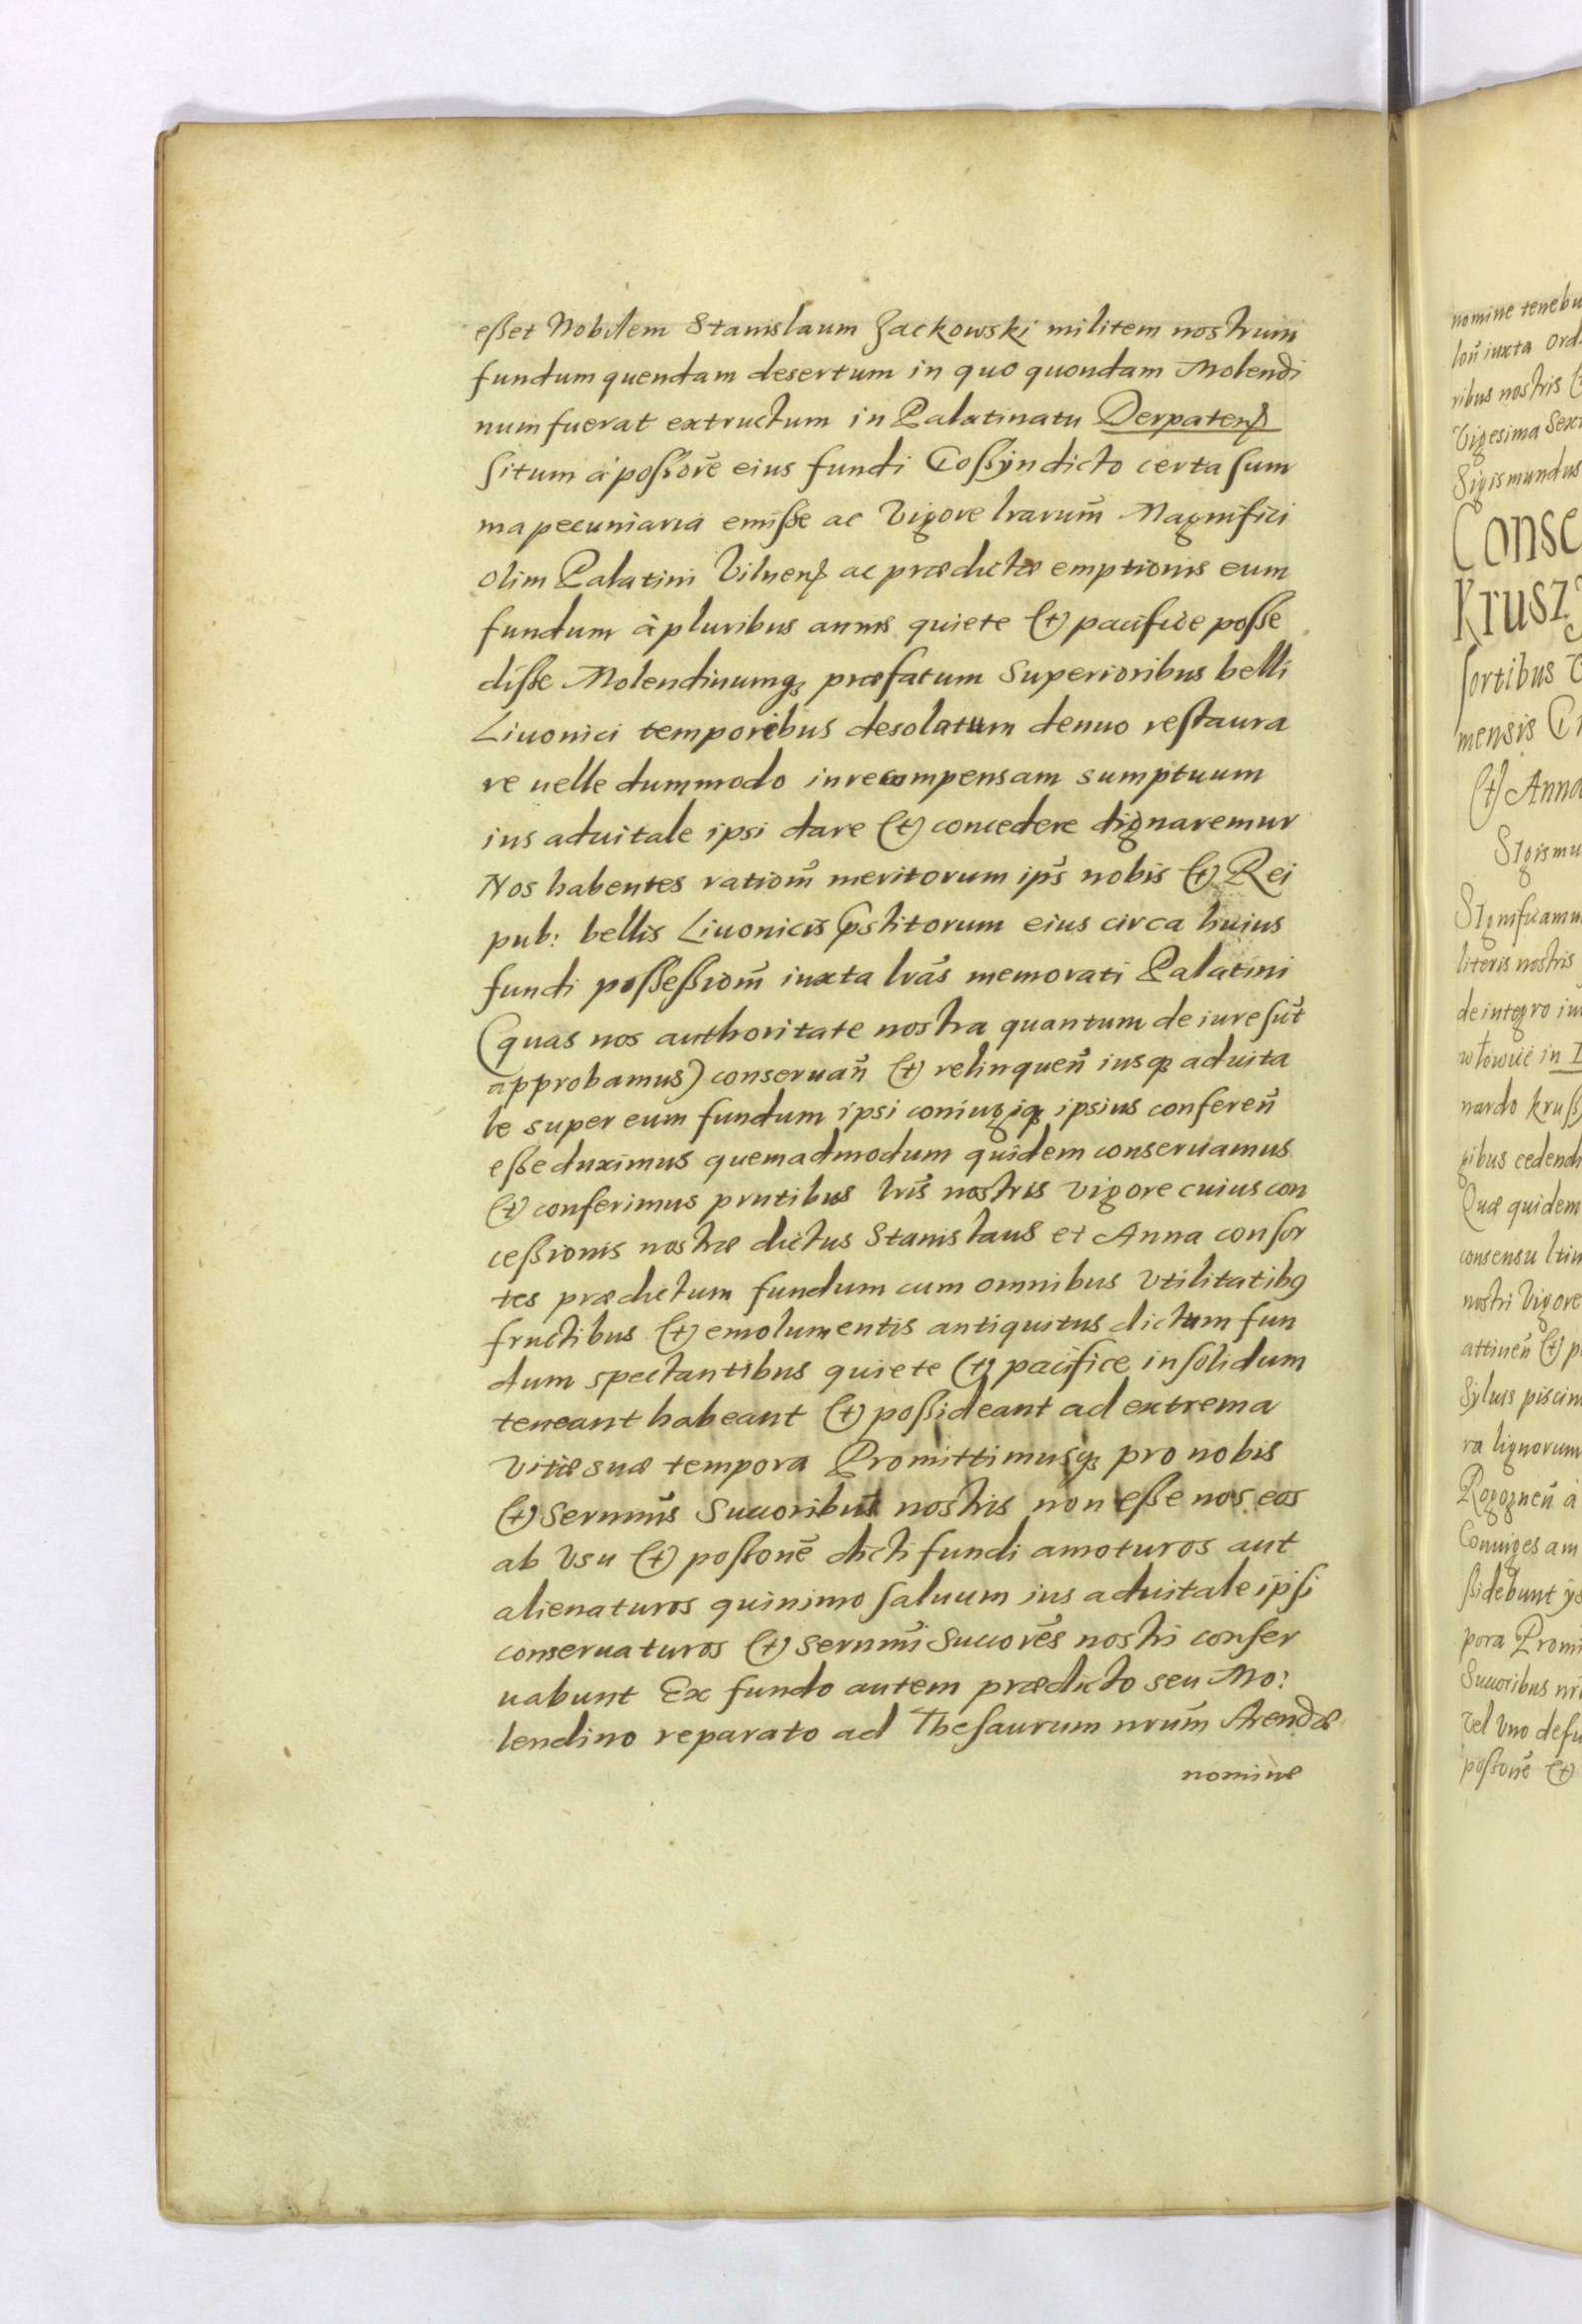 eßet Nobilem Stanislaum Zackowski militem nostrum
fundum quendam desertum in quo quondam Molendi
num fuerat extructum in Palatinatu Derpatenß
situm à poßore eius fundi Coßyn dicto certa sum
ma pecuniaria emiße ac Vigore lrarum̃ Magnifici
olim Palatini Vilnenß ac prædictæ emptionis eum
fundum à pluribus annis quiete et pacifice poße
diße Molendinumq præfatum Superioribus belli
Liuonici temporibus desolatum denuo restaura
re uelle dummodo in recompensam sumptuum
ius aduitale ipsi dare et concedere dignaremur
Nos habentes rationẽ meritorum ips̃ nobis et Rei
pub: bellis Liuonicis p̃stitorum eius circa huius
fundi poßeßionẽ iuxta lrãs memorati Palatini
(quas nos authoritate nostra quantum de iure sũt
approbamus) conseruañ et relinqueñ iusq aduita
le super eum fundum ipsi coniugiq ipsius confereñ
eße duximus quemadmodum quidem conseruamus
et conferimus pñtibus lrĩs nostris vigore cuius con
ceßionis nostræ dictus Stanislaus et Anna consor
tes prædictum fundum cum omnibus Vtilitatibg
fructibus et emolumentis antiquitus dictum fun
dum spectantibus quiete et pacifice in solidum
teneant habeant et poßideant ad extrema
Vitæ suæ tempora Promittimusq pro nobis
et sernm̃is Succoribus nostris non eße nos eos
ab Vsu et poßonẽ dicti fundi amoturos aut
alienaturos quinimo saluum ius aduitale ipsi
conseruaturos et sernm̃i Succorẽs nostri conser
uabunt Ex fundo autem prædicto seu Mo:
lendino reparato ad Thesaurum nrũm Arendæ
nomine
nomine tenebu
loñ iuxta Ord
ribus nostris
Vigesima Sex
Sigismundus
Conse
Krusz
sortibus
mensis
et Anna
Sigismu
Significamu
literis nostris
de integro iu
wlowie in
nardo kruß
gibus cedendi
Quæ quidem
consensu
nostri Vigore
attineñ et p
Syluis piscin
ra lignorum
Rogozneñ à
Coniuges am
ßidebunt
pora Promi
Succoribus
Vel Vno defu
poßonẽ et